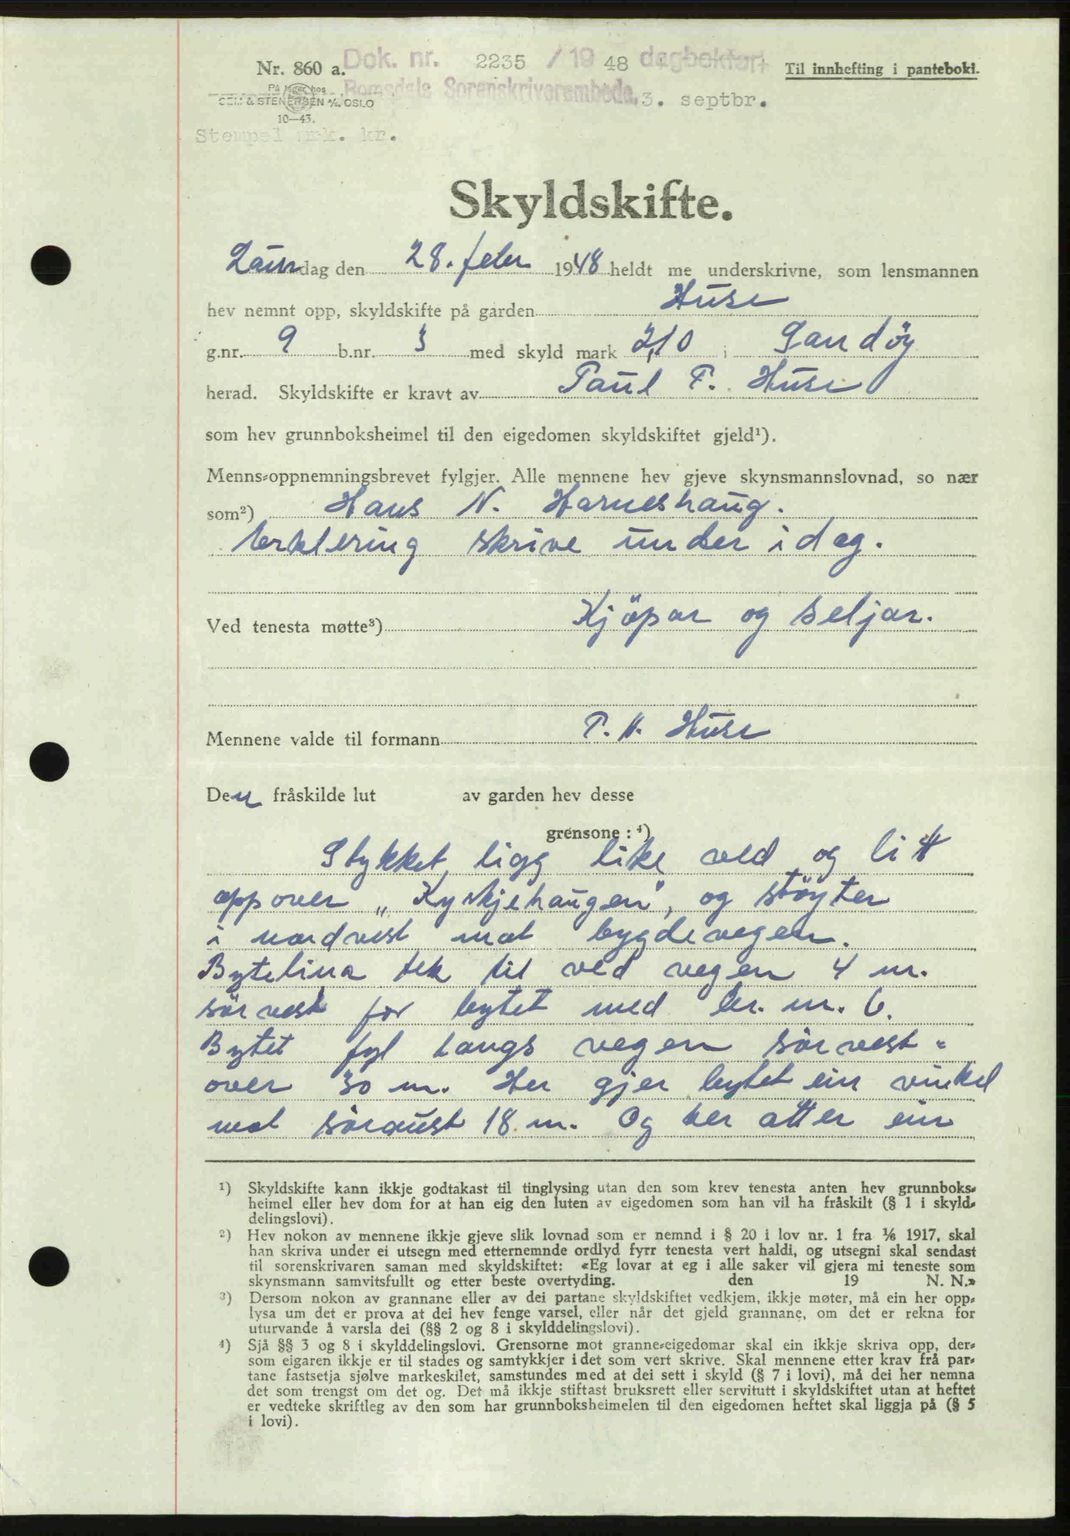 Nr. 860 a. Dok. nr. 2235 / 19 48 dagbokført Til innhefting i pantebok.
På lager hos Romsdals Sorenskriverembede, 3. septbr.
SEM & STENERSEN A/S, OSLO
10—43.
Stempel mrk. kr.
Skyldskifte.
Laurdag den 28. febr 1948 heldt me underskrivne, som lensmannen
hev nemnt opp, skyldskifte på garden Huse
g.nr. 9 b.nr. 3 med skyld mark 2,10 i Sandöy
herad. Skyldskifte er kravt av Paul P. Huse
som hev grunnboksheimel til den eigedomen skyldskiftet gjeld¹).
Menns-oppnemningsbrevet fylgjer. Alle mennene hev gjeve skynsmannslovnad, so nær
som²) Hans N. Harneshaug.
Erklering skrive under idag.
Ved tenesta møtte³) Kjöpar og seljar.
Mennene valde til formann P. N. Huse
Den fråskilde lut av garden hev desse
grensone: ⁴)
Stykket ligg like ved og litt
oppover „Kyrkjehaugen", og stöyter
i nordvest mot bygdevegen.
Bytelina tek til ved vegen 4 m.
sörvest for bytet med br. nr. 6.
Bytet fyl langs vegen sörvest-
over 30 m. Her gjer bytet ein vinkel
mot söraust 18 m. Og her atter ein
¹) Skyldskifte kann ikkje godtakast til tinglysing utan den som krev tenesta anten hev grunnboks-
heimel eller hev dom for at han eig den luten av eigedomen som han vil ha fråskilt (§ 1 i skyld-
delingslovi).
²) Hev nokon av mennene ikkje gjeve slik lovnad som er nemnd i § 20 i lov nr. 1 fra 1/6 1917, skal
han skriva under ei utsegn med etternemnde ordlyd fyrr tenesta vert haldi, og utsegni skal sendast
til sorenskrivaren saman med skyldskiftet: «Eg lovar at eg i alle saker vil gjera mi teneste som
skynsmann samvitsfullt og etter beste overtyding. den 19 N. N.»
³) Dersom nokon av grannane eller av dei partane skyldskiftet vedkjem, ikkje møter, må ein her opp-
lysa um det er prova at dei hev fenge varsel, eller når det gjeld grannane, om det er rekna for
uturvande å varsla dei (§§ 2 og 8 i skylddelingslovi).
⁴) Sjå §§ 3 og 8 i skylddelingslovi. Grensorne mot granne-eigedomar skal ein ikkje skriva opp, der-
som eigaren ikkje er til stades og samtykkjer i det som vert skrive. Skal mennene etter krav frå par-
tane fastsetja sjølve markeskilet, samstundes med at dei sett i skyld (§ 7 i lovi), må dei her nemna
det som trengst om det og. Det må ikkje stiftast bruksrett eller servitutt i skyldskiftet utan at heftet
er vedteke skriftleg av den som har grunnboksheimelen til den eigedomen heftet skal liggja på (§ 5
i lovi).